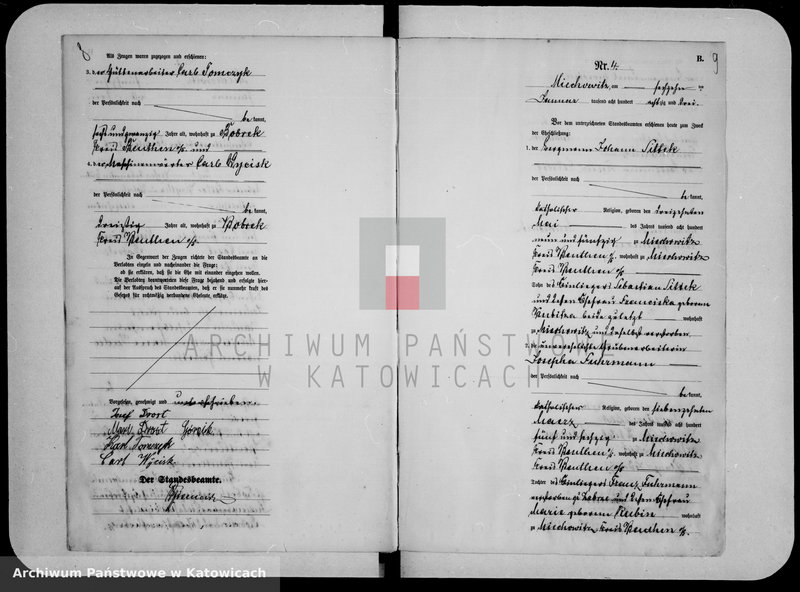 8
Als Zeugen waren zugezogen und erschienen:
3. der Hüttenarbeiter Carl Tomczyk
der Persönlichkeit nach
be kannt,
sechsundzwanzig Jahre alt, wohnhaft zu Bobrek
Kreis Beuthen o/s. und
4. der Maschinenwärter Carl Wycisk
der Persönlichkeit nach
be kannt,
dreizig Jahre alt, wohnhaft zu Bobrek
Kreis Beuthen o/s.
In Gegenwart der Zeugen richtete der Standesbeamte an die
Verlobten einzeln und nacheinander die Frage:
ob sie erklären, daß sie die Ehe mit einander eingehen wollen.
Die Verlobten beantworteten diese Frage bejahend und erfolgte hier-
auf der Ausspruch des Standesbeamten, daß er sie nunmehr kraft des
Gesetzes für rechtmäßig verbundene Eheleute erkläre.
Vorgelesen, genehmigt und unterschrieben.
Josef Drost
Marie Drost Górzik
Karl Tomczyk
Carl Wycisk
Der Standesbeamte.
B.
9
Nr. 4.
Miechowitz, am sechzehn ten
Januar tausend acht hundert achtzig und drei.
Vor dem unterzeichneten Standesbeamten erschienen heute zum Zweck
der Eheschließung:
1. der Bergmann Johann
der Persönlichkeit nach
be kannt,
katholischer Religion, geboren den dreizehnten
Mai des Jahres tausend acht hundert
neun und fünfzig zu Miechowitz
Kreis Beuthen o/s., wohnhaft zu Miechowitz
Kreis Beuthen o/s
Sohn des Einliegers Sebastian
und dessen Ehefrau Franciska geborene
beide zuletzt wohnhaft
zu Miechowitz und daselbst verstorben
2. die unverehelichte Grubenarbeiterin
Josepha Fuhrmann
der Persönlichkeit nach
be kannt,
katholischer Religion, geboren den siebenzehnten
Maerz des Jahres tausend acht hundert
fünf und sechzig zu Miechowitz
Kreis Beuthen o/s., wohnhaft zu Miechowitz
Kreis Beuthen o/s
Tochter des Einliegers Franz Fuhrmann
verstorben zu Zabrze und dessen Ehefrau
Marie geborene Rubin wohnhaft
zu Miechowitz Kreis Beuthen o/s.
ARCHIWUM PAŃSTWOWE
W KATOWICACH
Archiwum Państwowe w Katowicach